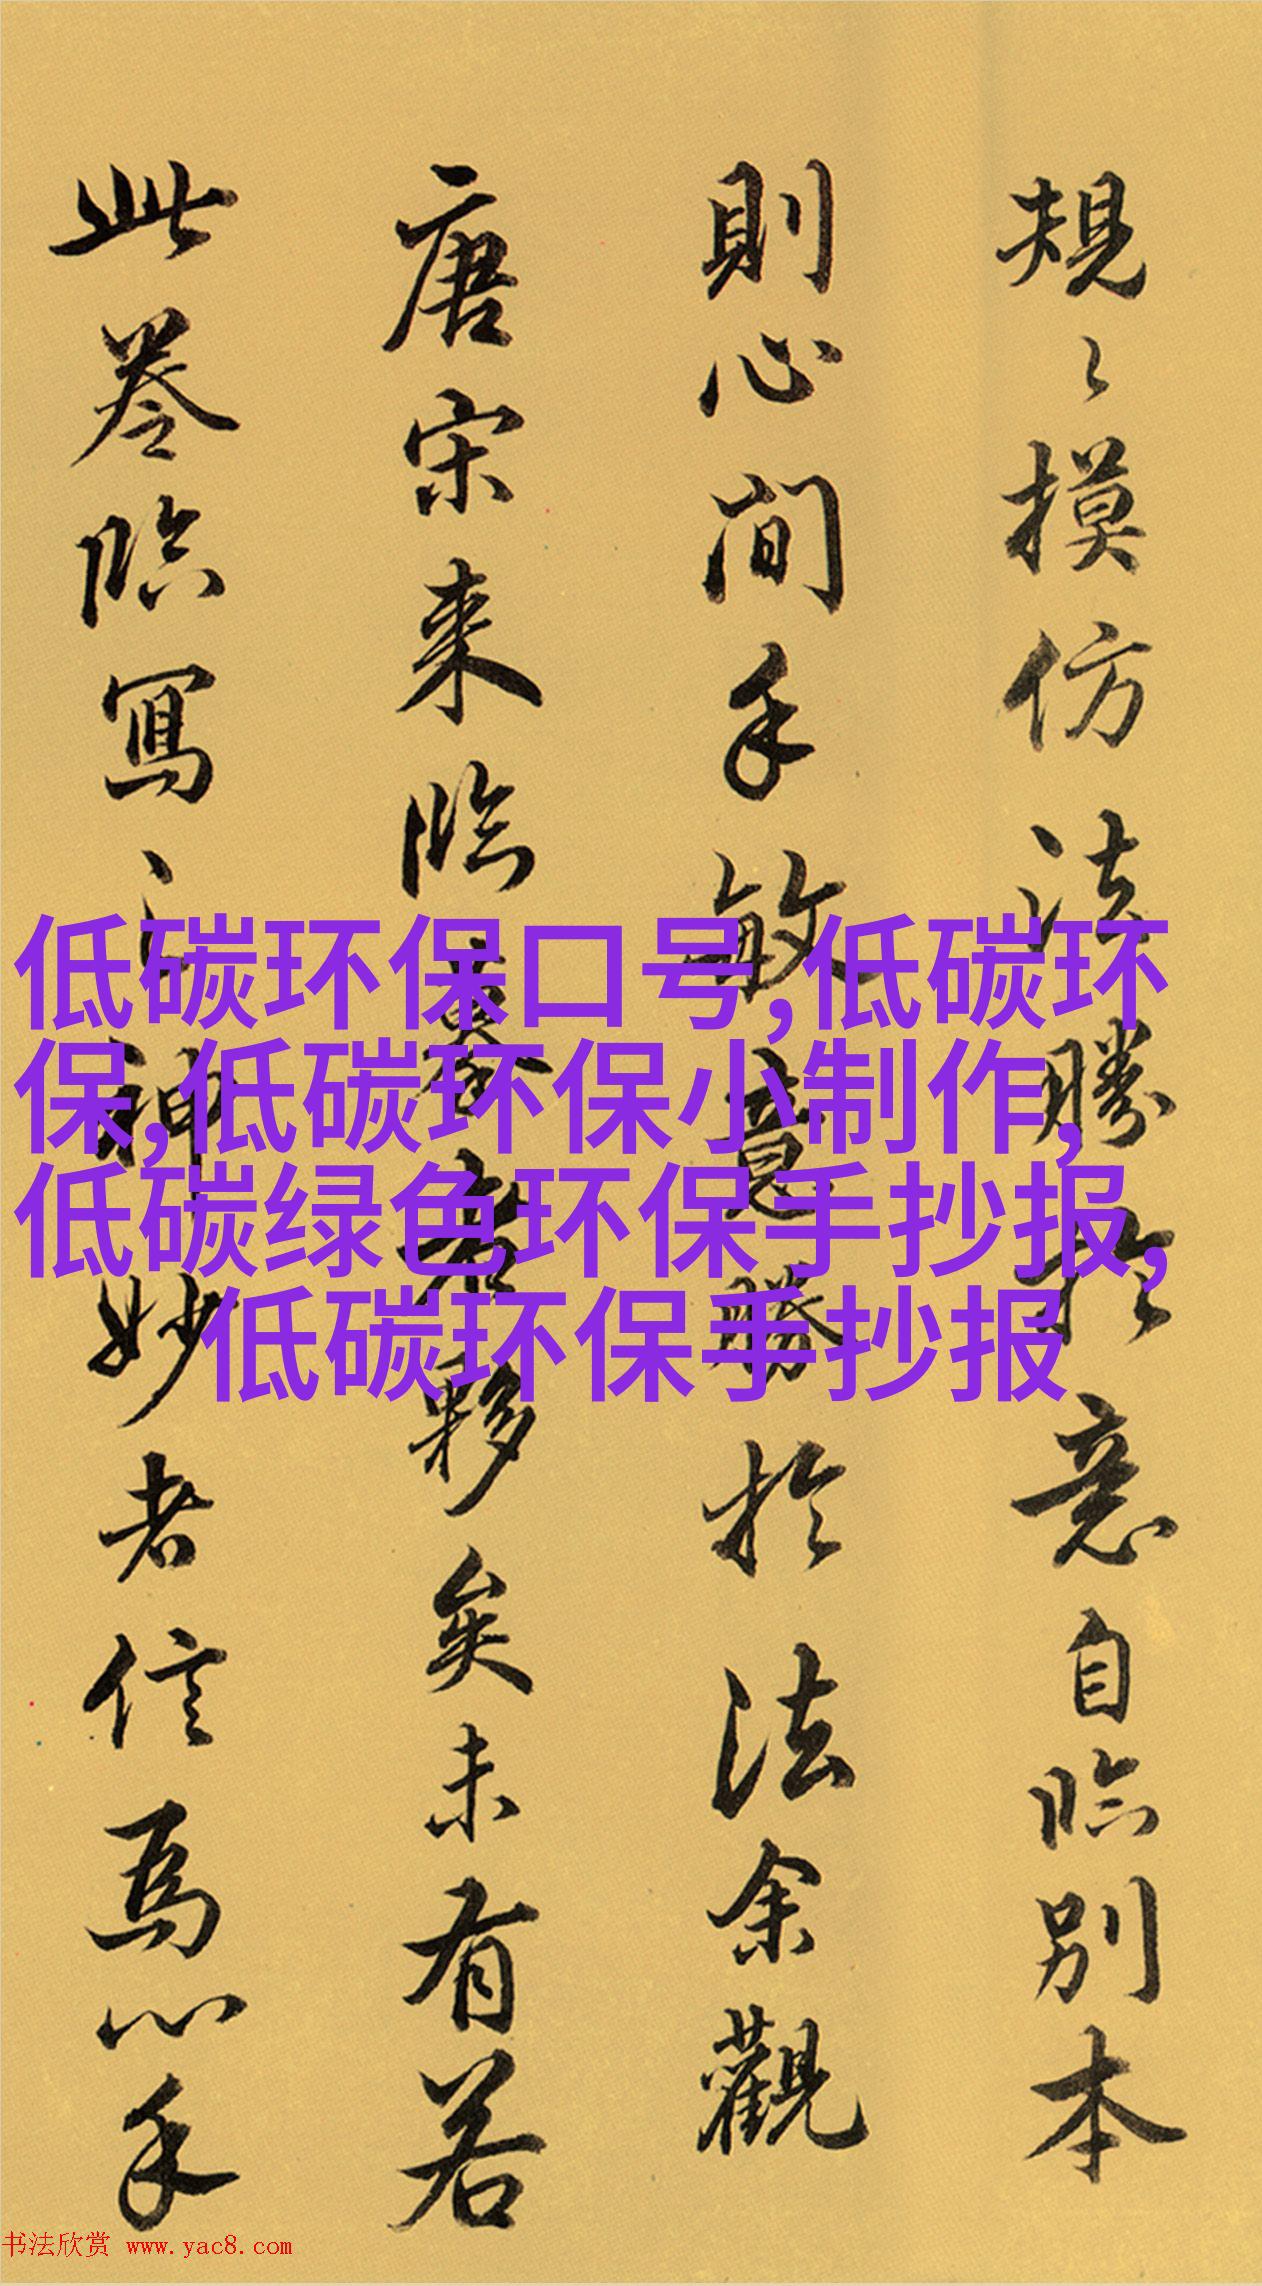 規〻摸仿法勝於意自临別本
則心間手敏意勝於法余觀
唐宋来临摹者夥矣未有若
此卷临寫之神妙者信焉心手
低碳环保口号,低碳环
保,低碳环保小制作,
低碳绿色环保手抄报,
低碳环保手抄报
书法欣赏 www.yac8.com